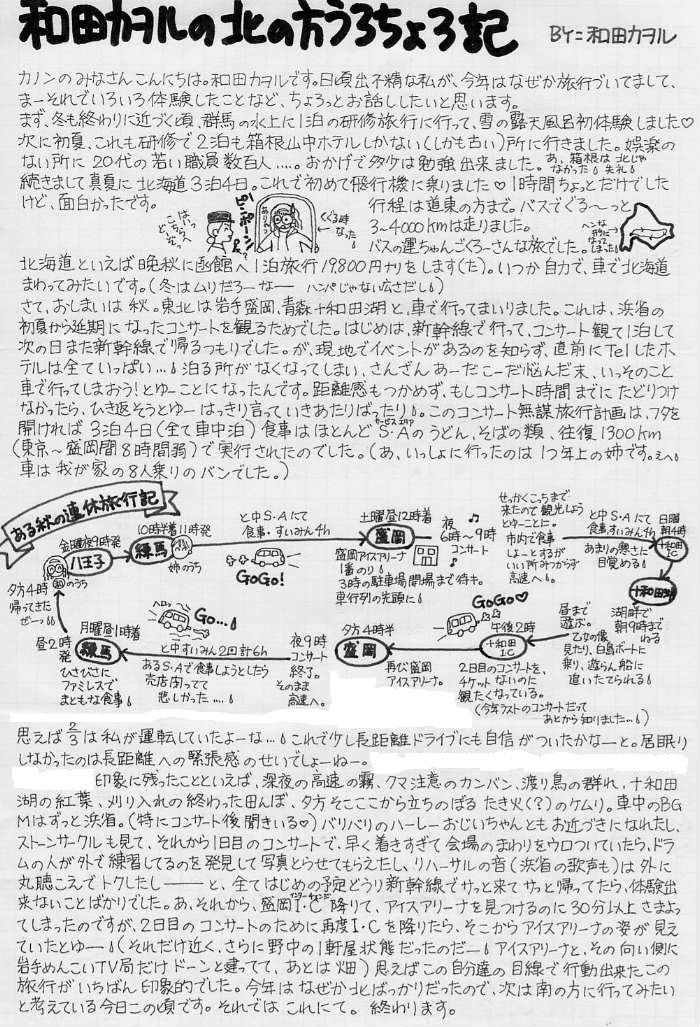 和田カヲルの北の方うろちょろ記
BY=和田カヲル
カノンのみなさんこんにちは。和田カヲルです。日頃出不精な私が、今年はなぜか旅行づいてまして、
まーそれでいろいろ体験したことなど、ちょろっとお話ししたいと思います。
まず、冬も終わりに近づく頃、群馬の水上に1泊の研修旅行に行って、雪の露天風呂初体験しました♡
次に初夏、これも研修で2泊も箱根山中ホテルしかない(しかも古い)所に行きました。娯楽の
ない所に20代の若い職員数百人……。おかげで多少は勉強出来ました。
あ、箱根は北じゃ
なかった 失礼
続きまして真夏に北海道3泊4日。これで初めて飛行機に乗りました♡1時間ちょっとだけでした
けど、面白かったです。
はいっ
こちらへ
どうぞ
ピンポーン
くぐる時
なった
行程は道東の方まで。バスでぐる〜っと
3〜4000kmは走りました。
バスの運ちゃんごくろーさんな旅でした。
ヘンな
形に
なって
しまった
北海道といえば晩秋に函館へ1泊旅行19800円ナリをします(た)。いつか自力で、車で北海道
まわってみたいです。(冬はムリだろーなー ハンパじゃない広さだし)
さて、おしまいは秋。東北は岩手盛岡、青森十和田湖と、車で行ってまいりました。これは、浜省の
初夏から延期になったコンサートを観るためでした。はじめは、新幹線で行って、コンサート観て1泊して
次の日また新幹線で帰るつもりでした。が、現地でイベントがあるのを知らず、直前にTelしたホ
テルは全ていっぱい…泊る所がなくなってしまい、さんざんあーだこーだ悩んだ末、いっそのこと
車で行ってしまおう!とゆーことになったんです。距離感もつかめず、もしコンサート時間までにたどりつけ
なかったら、ひき返そうとゆーはっきり言っていきあたりばったり。このコンサート無謀旅行計画は、フタを
開ければ3泊4日(全て車中泊)食事はほとんどS・Aのうどん、そばの類、往復1300km
サービスエリア
(東京〜盛岡間8時間弱)で実行されたのでした。(あ、いっしょに行ったのは1つ年上の姉です。
車は我が家の8人乗りのバンでした。)
ある秋の連休旅行記
金曜夜9時発
八王子
のうち
10時半着11時発
練馬
姉のうち
と中S・Aにて
食事・すいみん4h
GoGo!
土曜昼12時着
盛岡
盛岡アイスアリーナ
1番のり
3時の駐車場開場まで待キ。
車行列の先頭に
夜
6時〜9時
コンサート
せっかくこっちまで
来たので観光しよう
とゆーことに。
市内で食事
しよーとするが
いい所みつからず
高速へ。
と中S・Aにて
食事・すいみん4h
あまりの寒さに
目覚める
日曜
朝4時
十和田
I・C
十和田湖
湖畔で
朝9時まで
ねる
昼まで
遊ぶ。
乙女の像
見たり、白鳥ボートに
乗り、遊らん船に
追いたてられる
GoGo♡
午後2時
十和田
I・C
2日目のコンサートを、
チケットないのに
観たくなっている。
(今年ラストのコンサートだって
あとから知りました…)
夕方4時半
盛岡
再び盛岡
アイスアリーナ。
夜9時
コンサート
終了。
そのまま
高速へ。
Go…
と中すいみん2回計6h
あるS・Aで食事しようとしたら
売店閉ってて
悲しかった…
月曜昼1時着
練馬
昼2時
発
ひさびさに
ファミレスで
まともな食事
夕方4時
帰ってきた
ぜーっ
思えば2/3は私が運転していたよーな…これで少し長距離ドライブにも自信がついたかなーと。居眠り
しなかったのは長距離への緊張感のせいでしょーねー。
印象に残ったことといえば、深夜の高速の霧、クマ注意のカンバン、渡り鳥の群れ、十和田
湖の紅葉、刈り入れの終わった田んぼ、夕方そこここから立ちのぼるたき火(?)のケムリ。車中のBG
Mはずっと浜省。(特にコンサート後聞きいる♡)バリバリのハーレーおじいちゃんともお近づきになれたし、
ストーンサークルも見て、それから1日目のコンサートで、早く着きすぎて会場のまわりをウロついていたら、ドラ
ムの人が外で練習してるのを発見して写真とらせてもらえたし、リハーサルの音(浜省の歌声も)は外に
丸聴こえでトクしたし――と、全てはじめの予定どうり新幹線でサッと来てサッと帰ってたら、体験出
来ないことばかりでした。あ、それから、盛岡I・C降りて、アイスアリーナを見つけるのに30分以上さまよっ
インターチェンジ
てしまったのですが、2日目のコンサートのために再度I・Cを降りたら、そこからアイスアリーナの姿が見え
ていたとゆー(それだけ近く、さらに野中の1軒屋状態だったのだーアイスアリーナと、その向い側に
岩手めんこいTV局だけドーンと建ってて、あとは畑)思えばこの自分達の目線で行動出来たこの
旅行がいちばん印象的でした。今年はなぜか北ばっかりだったので、次は南の方に行ってみたい
と考えている今日この頃です。それではこれにて。終わります。